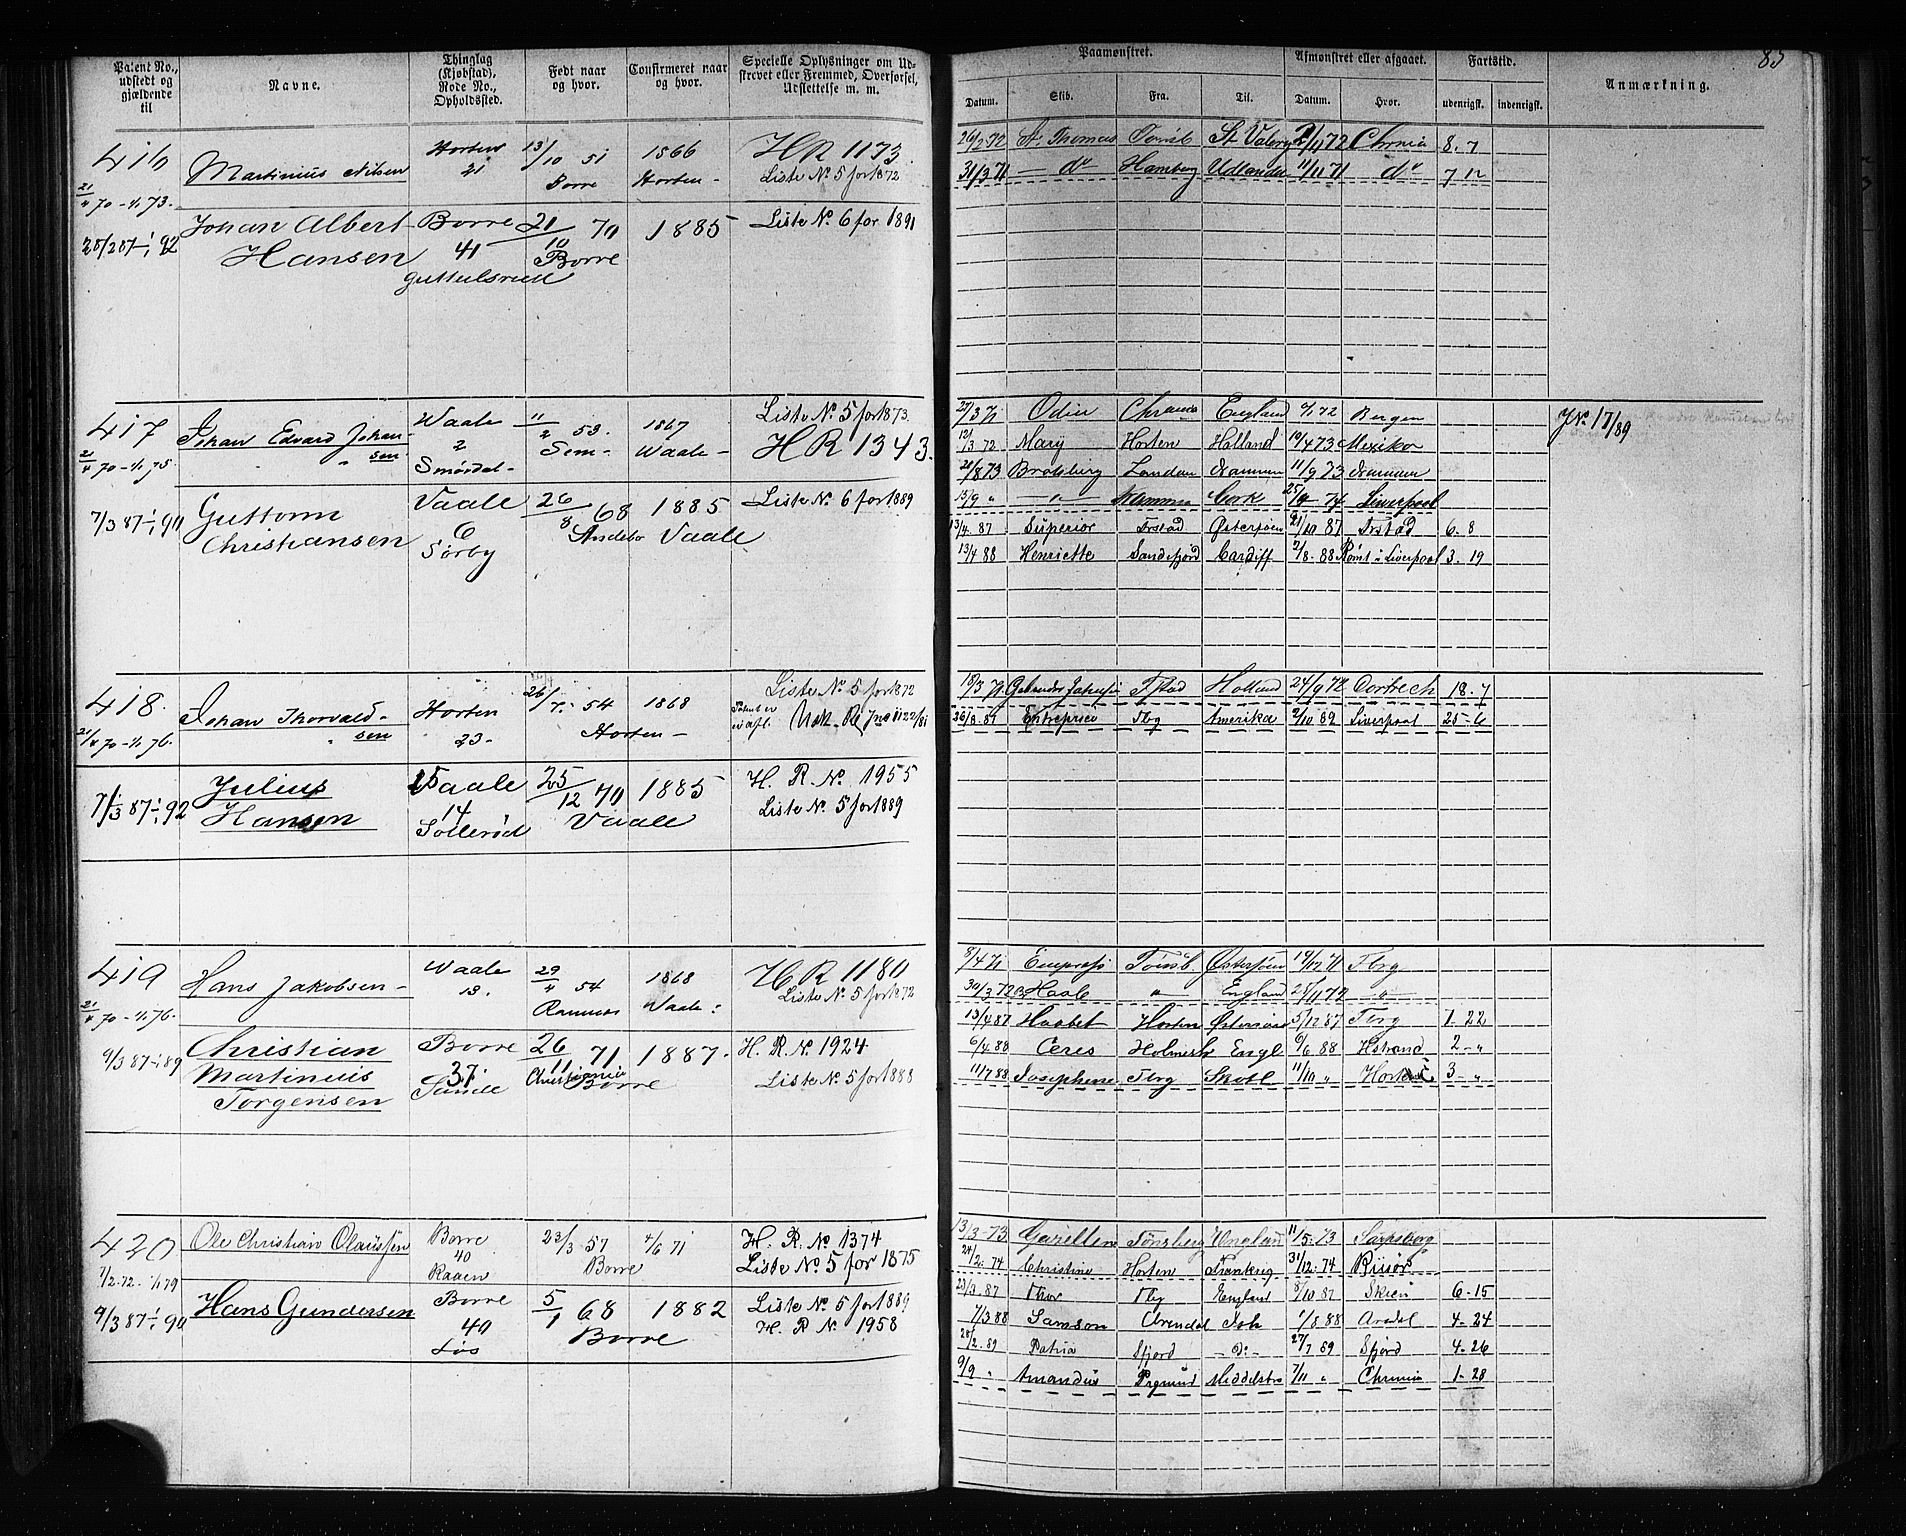 85
Patent No., udstedt og gjældende til
Navne.
Thinglag (Kjøbstad), Rode No., Opholdssted.
Født naar og hvor.
Confirmeret naar og hvor.
Specielle Oplysninger om Udskrevet eller Fremmed, Overførsel, Udslettelse m. m.
Paamønstret.
Datum. Skib. Fra. Til.
Afmønstret eller afgaaet.
Datum. Hvor.
Fartstid.
udenrigsk. indenrigsk.
Anmærkning.
416
21/4 70 - 1/1 73.
Martinius Nilsen
Horten
21
13/10 51
Borre
1866
Horten -
HR 1173.
Liste No. 5 for 1872
26/2 72 St. Thomas Tønsb St. Valery 2/11 72 Chrnia 8. 7
31/3 71 — do Hamburg Udlandet 11/11 71 do 7 12
25/2 87 - 1/1 92
Johan Albert
Hansen
Borre
41
Guttulsrud
21/10 70
Borre
1885
Liste No. 6 for 1891
417
21/4 70 - 1/1 75.
Johan Edvard Johan-
sen
Waale
2
Smørdal -
11/2 53.
Sem -
1867
Waale -
Liste No. 5 for 1873.
HR 1343.
27/3 71 Odin Chrania England 72 Bergen
J No. 17/89
12/3 72 Mary Horten Holland 10/4 73 Mexiko
21/8 73 Bratsberg London Drammen 11/9 73 Drammen
15/9 " — " — Drammen Cork 25/9 74 Liverpool
7/3 87 - 1/1 90
Guttorm
Christiansen
Vaale
6
Sørby
26/8 68
Andebo
1885
Vaale
Liste No. 6 for 1889
13/4. 87 Superior Frstad Østersøen 21/10 87 Frstad 6. 8
13/4 88 Henriette Sandefjord Cardiff 2/8. 88 Rømt i Liverpool 3. 19
418.
21/4 70 - 1/1 76.
Johan Thorvald-
sen
Horten
23.
26/7. 54
Horten -
1868
Liste No. 5 for 1872
18/3 71 Fstad Holland 24/9 72 Dortrech 18. 7
26/8. 81 Entreprise Tbg Amerika 2/10 82 Liverpool 25-6
7/3 87 - 1/1 92
Julius
Hansen
Vaale
14
Sollerød
25/12 70
Vaale
1885
H. R. No. 1955
Liste No. 5 for 1889
419
21/4 70 - 1/1 76.
Hans Jakobsen -
Waale
13.
29/4 54
Ramnæs
1868
Waale
HR 1180
Liste No. 5 for 1872
8/4 71 Empress Tønsb Østersøen 14/12 71 Tbrg
30/3 72 Hasle " England 25/11 72 — " —
9/3 87 - 1/1 89
Christian
Martinius
Torgensen
Borre
37
Sande
26/11 71
Christiania
1887.
Borre
H. R. No. 1924
Liste No. 5 for 1888
13/4 87 Haabet Horten Østersøen 5/12 87 Tbrg 1-22
6/4. 88 Ceres Holmestr Engl 9/6 88 Hstrand 2- "
11/7 88 Josephine Tbrg Skotl 11/10 " Horten 3- "
420
7/2. 72. - 1/1 79
Ole Christian Olaussen
Borre
40
Raaen
23/3 57
Borre
4/6 71
H. R. No 1374
Liste No. 5 for 1875
13/3-73 Tønsberg England 11/5. 73 Sarpsborg
24/2. 74 Christine Horten Frankrig 31/12. 74 Risør
9/3 87 - 1/1 90
Hans Gundersen
Borre
40
Løs
5/1 68
Borre
1882
Liste No. 5 for 1889
H. R No. 1958
23/3. 87 Thor Tbg England 8/10 87 Skien 6-15
7/3 88 Samson Arendal do 1/8 88 Ardal 4-24
28/2. 89 Patria Sfjord - Do - 27/7 89 Sfjord 4-26
9/9 " Amandus Prgrund Middelhv 7/11 " Chrnia 1-28